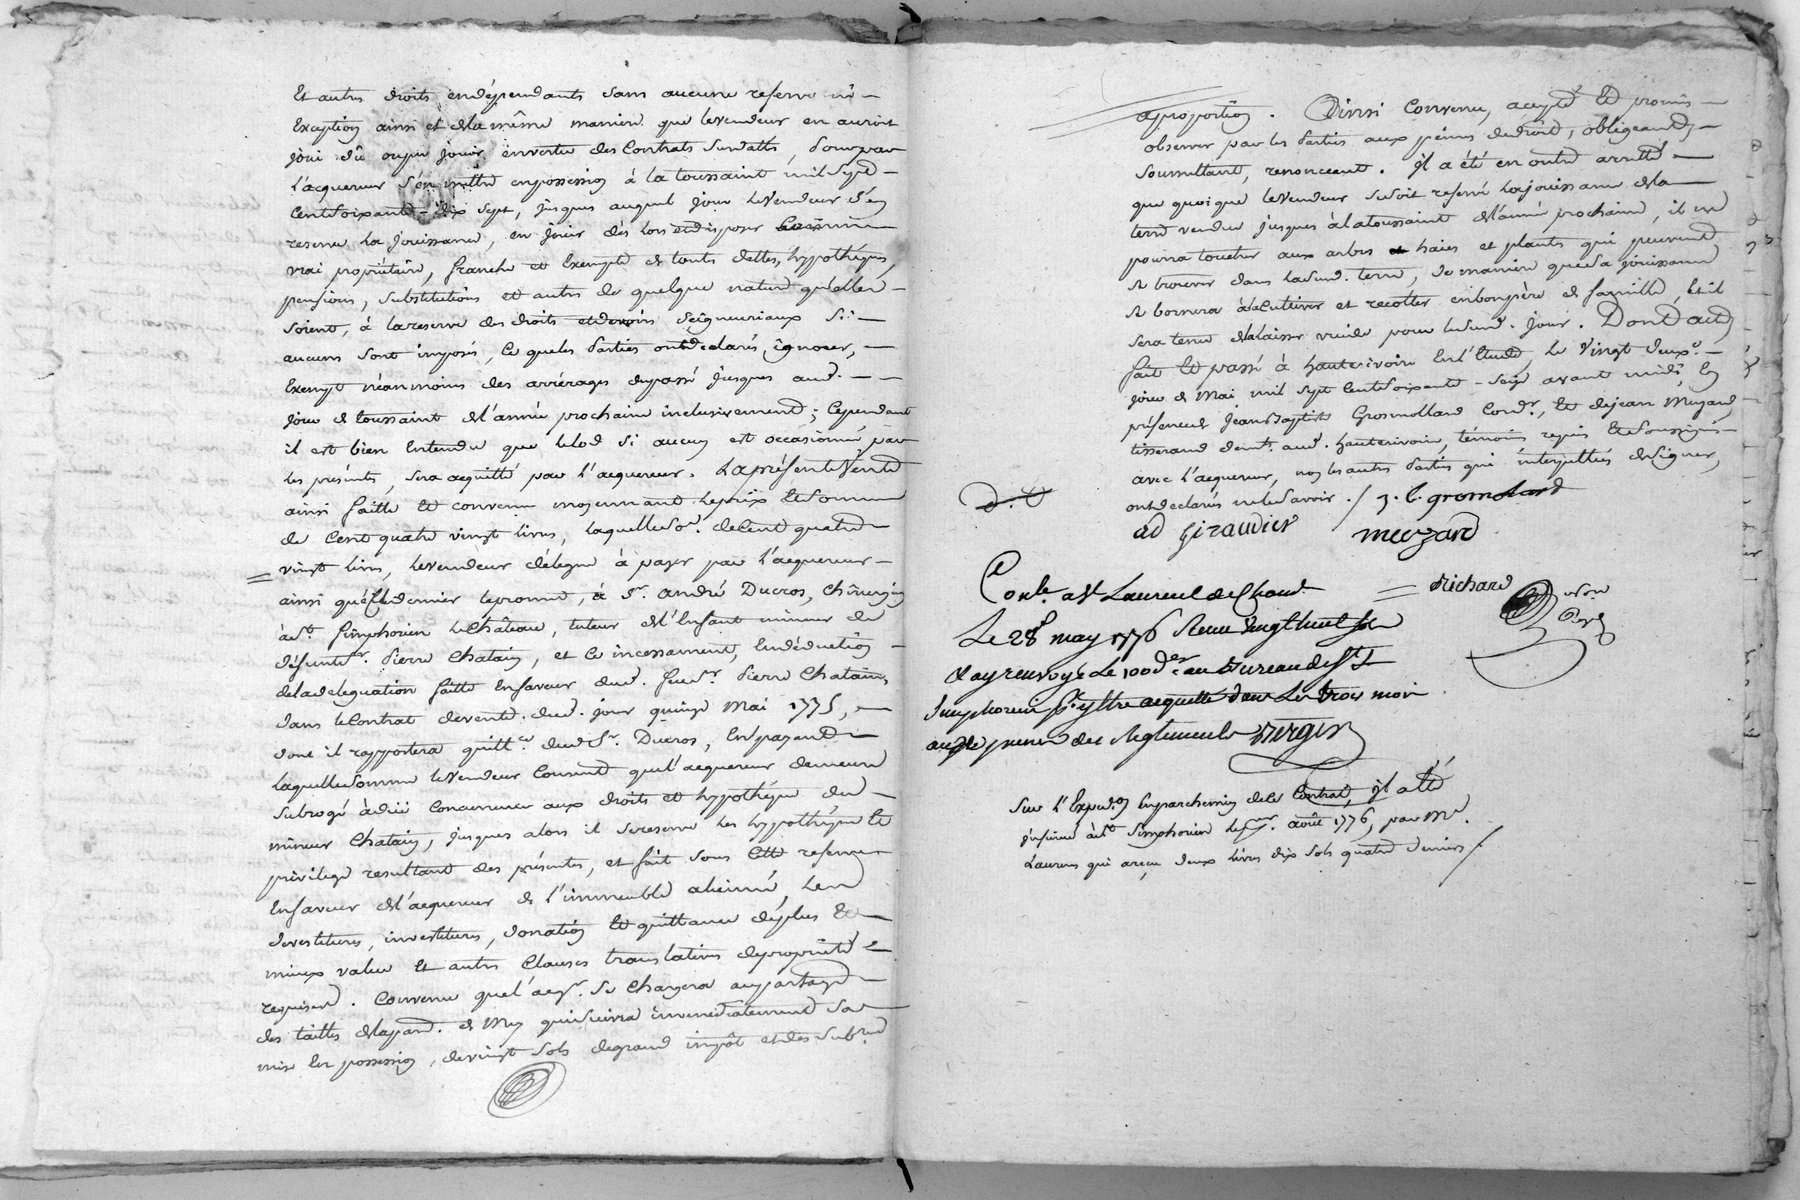 Et autres droits endépendants sans aucune reserve ni
Exception ainsi et dela même maniere que levendeur en auroit
joui dû oupu jouir envertu des Contrats susdattés, pourpar
l'acquereur s'en mettre enpossession à la toussaint mil sept
Centsoixante-dix sept, jusques auquel jour levendeur s'en
reserve la jouissance, en jouir dès lors etdisposer comme
vrai propriétaire, franche et Exempte de touts dettes, hypothéques,
pensions, substitutions et autres de quelque nature qu'elles
soient, à lareserve des droits etdevoirs seigneuriaux si
aucuns sont imposés, ce queles Parties ontdeclarés ignorer,
Exempt néanmoins des arrérages dupassé jusques aud.
jour de toussaint del'année prochaine inclusivement; Cependant
il est bien Entendu que lelod si aucun est occasionné par
les présentes, sera acquitté par l'acquereur. Laprésente Vente
ainsi faitte et convenue moyennant leprix et somme
de Cent quatre vingt livres, laquelleso.e deCent quatre
vingt livres, levendeur délegue à payer par l'acquereur
ainsi quéCedernier lepromet, à S.r andré Ducros, chirurgien
àSt. simphorien leChâteau, tuteur del'Enfant mineur de
défunt S.r Pierre Chatain, et ce incessament, Endéduction
deladeleguation faitte Enfaveur dud. feu S.r Pierre Chatain,
dans leContrat devente dud. jour quinze Mai 1775,
dont il rapportera quitt.ce dud. S.r Ducros, En payant
laquellesomme levendeur Consent quel'acquereur demeure
subrogé àdüe concurrence aux droits et hypothéque du
mineur Chatain, jusques alors il sereserve les hypothéque et
privilege resultant des présentes, et fait sous Cette reserve
Enfaveur del'acquereur de l'immeuble alienné, les
devestitures, investitures, donation et quittance déplus et
mieux value et autres Clauses translatives depropriété
requises. Convenu quel'acq.r se Chargera aupartage
des tailles delapar. de Mey quisuivra immediatement sa
mise En possession, devingt sols degrand impôt etdes sub.
aproportion. Ainsi Convenu, accepté et promis
observer par les Parties aux peines dedroit, obligeant,
soumettant, renonceant. Il a été en outre arretté
que quoique levendeur sesoit reservé lajouissance dela
terre vendue jusques àlatoussaint del'année prochaine, il ne
pourra toucher aux arbres haies et plants qui peuvent
se trouver dans lasusd. terre, de maniere quesa jouissance
se bornera àlaCultiver et recolter enbonpère de famille, et il
sera tenu delalaisser vuide pour lesusd. jour. Dont acte,
fait et passé à hauterivoire En l'Etude, le Vingt deux.e
jour de Mai mil sept Centsoixante-seize avant midi, En
présence de JeanBaptiste Grosmolland Cord.r, et dejean Muzard,
tisserand dem.t aud. hauterivoire, témoins requis etsoussignés
avec l'acquereur, non lesautres Parties qui interpellées designer,
ontdeclarés nelesavoir ./ J. B. gromolard
D. D
ad Giraudier meuzard
Richard
Conle. a St Laurent de Cham.
Le 28e may 1776 Reçu vingt huit sols
Et ay renvoyé Le 100 d.er au Bureau de St
Simphorien Pr. y Etre acquitté dans Les trois mois
aux peines des Reglements Berger
Sur l'Expéd.on Enparchemin dele Contrat, il a été
insinué àSt. Simphorien le p.mier août 1776, par Mr.
Laurens qui areçu deux livres dix sols quatre deniers /